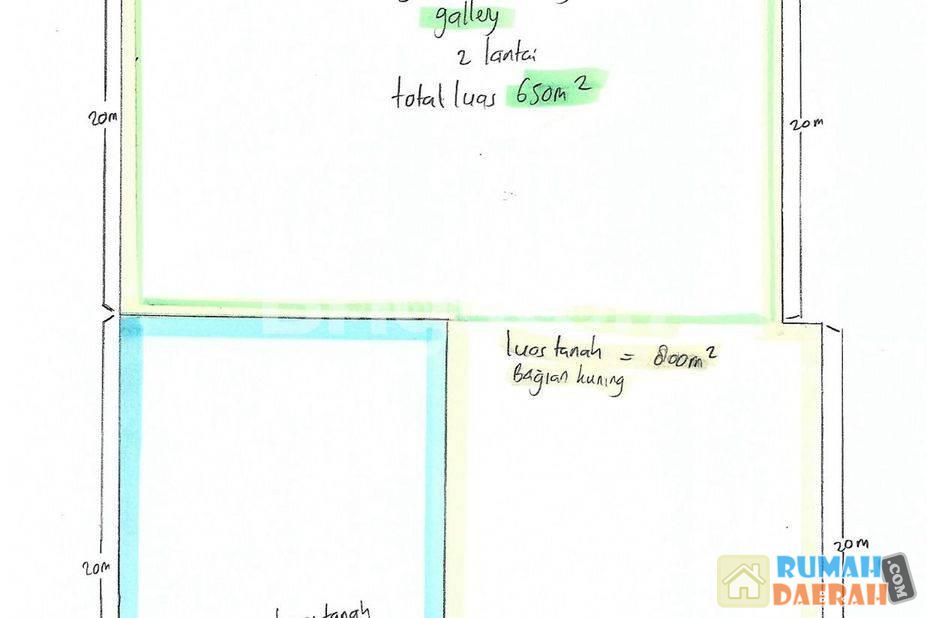 galley
2 lantai
total luas 650m²
20m
20m
luas tanah = 800m²
Bagian kuning
20m
20m
RUMAH
DAERAH
.COM
tanah